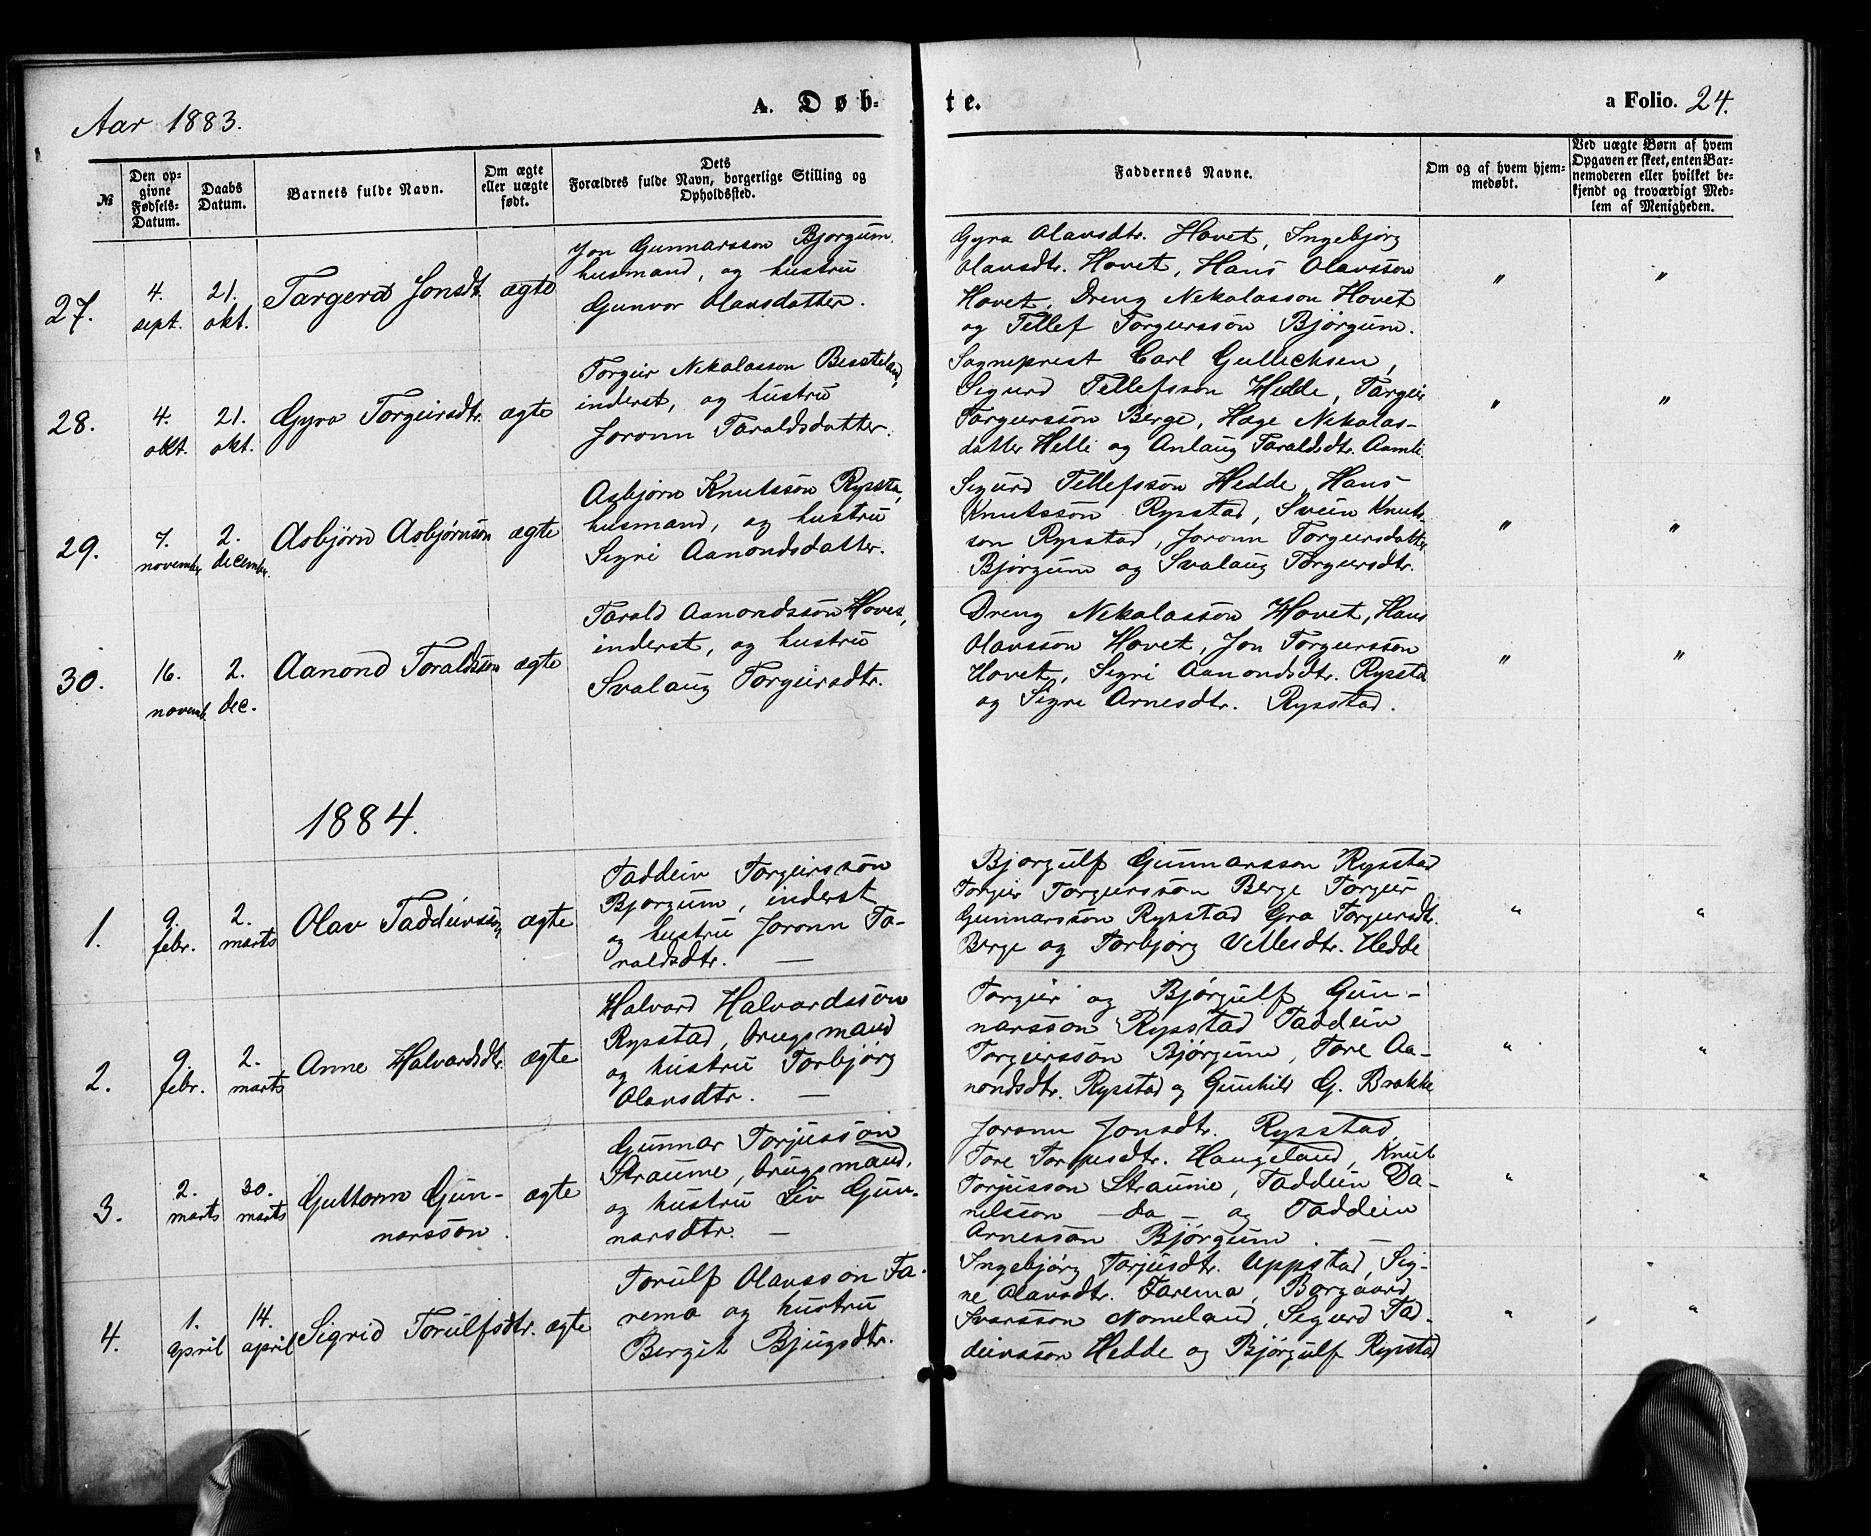 Aar 1883.
A. Døb-
te.
a Folio. 24.
№
Den op-
givne
Fødsels-
Datum.
Daabs
Datum.
Barnets fulde Navn.
Om ægte
eller uægte
født.
Dets
Forældres fulde Navn, borgerlige Stilling og
Opholdssted.
Faddernes Navne.
Om og af hvem hjem-
medøbt.
Ved uægte Børn af hvem
Opgaven er skeet, enten Bar-
nemoderen eller hvilket be-
kjendt og troværdigt Med-
lem af Menigheden.
27.
4.
sept.
21.
okt.
Targerd Jonsdt.
ægte
Jon Gunnarsson Bjørgum,
husmand, og hustru
Gunvor Olavsdatter.
Gyro Olavsdtr. Hovet, Ingebjørg
Olavsdtr. Hovet, Hans Olavsson
Hovet, Dreng Nekolasson Hovet
og Tellef Torgeirsson Bjørgum.
"
"
28.
4.
okt.
21.
okt.
Gyro Torgeirsdtr.
ægte
Torgeir Nekolasson Besteland,
inderst, og hustru
Joronn Taraldsdatter.
Sogneprest Carl Gullechsen,
Sigurd Tellefsson Hedde, Targeir
Torgeirsson Berge, Hæge Nekolas-
datter Helle og Anlaug Taraldsdtr. Aamli.
"
"
29.
7.
november
2.
december.
Asbjørn Asbjørnsøn
ægte
Asbjørn Knutsson Rysstad,
husmand, og hustru
Sigri Aanondsdatter.
Sigurd Tellefsson Hedde, Hans
Knutsson Rysstad, Svein Knuts-
son Rysstad, Joronn Torgeirsdatter
Bjørgum og Svalaug Torgeirsdtr.
"
"
30.
16.
novemb.
2.
dec.
Aanond Taraldsson
ægte
Tarald Aanondsson Hovet,
inderst, og hustru
Svalaug Torgeirsdtr.
Dreng Nekolasson Hovet, Hans
Olavsson Hovet, Jon Torgeirsson
Hovet, Sigri Aanondsdtr. Rysstad
og Sigri Arnesdtr. Rysstad.
"
"
1884.
1.
9.
febr.
2.
marts
Olav Taddeivsson
ægte
Taddeiv Torgeirsson
Bjørgum, inderst
og hustru Joronn Ta-
raldsdtr. —
Bjørgulf Gunnarsson Rysstad
Torgeir Torgeirsson Berge Torgeir
Gunnarsson Rysstad Gro Torgeirsdtr.
Berge og Torbjørg Vellesdtr. Hedde
"
"
2.
9.
febr.
2.
marts
Anne Halvardsdtr.
ægte
Halvard Halvardsson
Rysstad, brugsmand
og hustru Torbjørg
Olavsdtr. —
Torgeir og Bjørgulf Gun-
narsson Rysstad Taddeiv
Torgeirsson Bjørgum, Tore Aa-
nondsdtr. Rysstad og Gunhild G. Brokke
"
"
3.
2.
marts
30.
marts
Guttorm Gun-
narsson.
ægte
Gunnar Torjusson
Straume, brugsmand,
og hustru Liv Gun-
narsdtr. —
Joronn Jonsdtr. Rysstad,
Tore Torjusdtr. Haugeland, Knut
Torjusson Straume, Taddeiv Da-
nielsson — do — og Taddeiv
Arnesson Bjørgum. —
"
"
4.
1.
april
14.
april
Sigrid Torulfsdtr.
ægte
Torulf Olavsson Fa-
rema og hustru
Bergit Bjugsdtr.
Ingebjørg Torjusdtr. Uppstad, Sig-
ne Olavsdtr. Farema, Borgaard
Ivarsson Nomeland, Sigurd Tad-
deivsson Hedde og Bjørgulf Rysstad
"
"